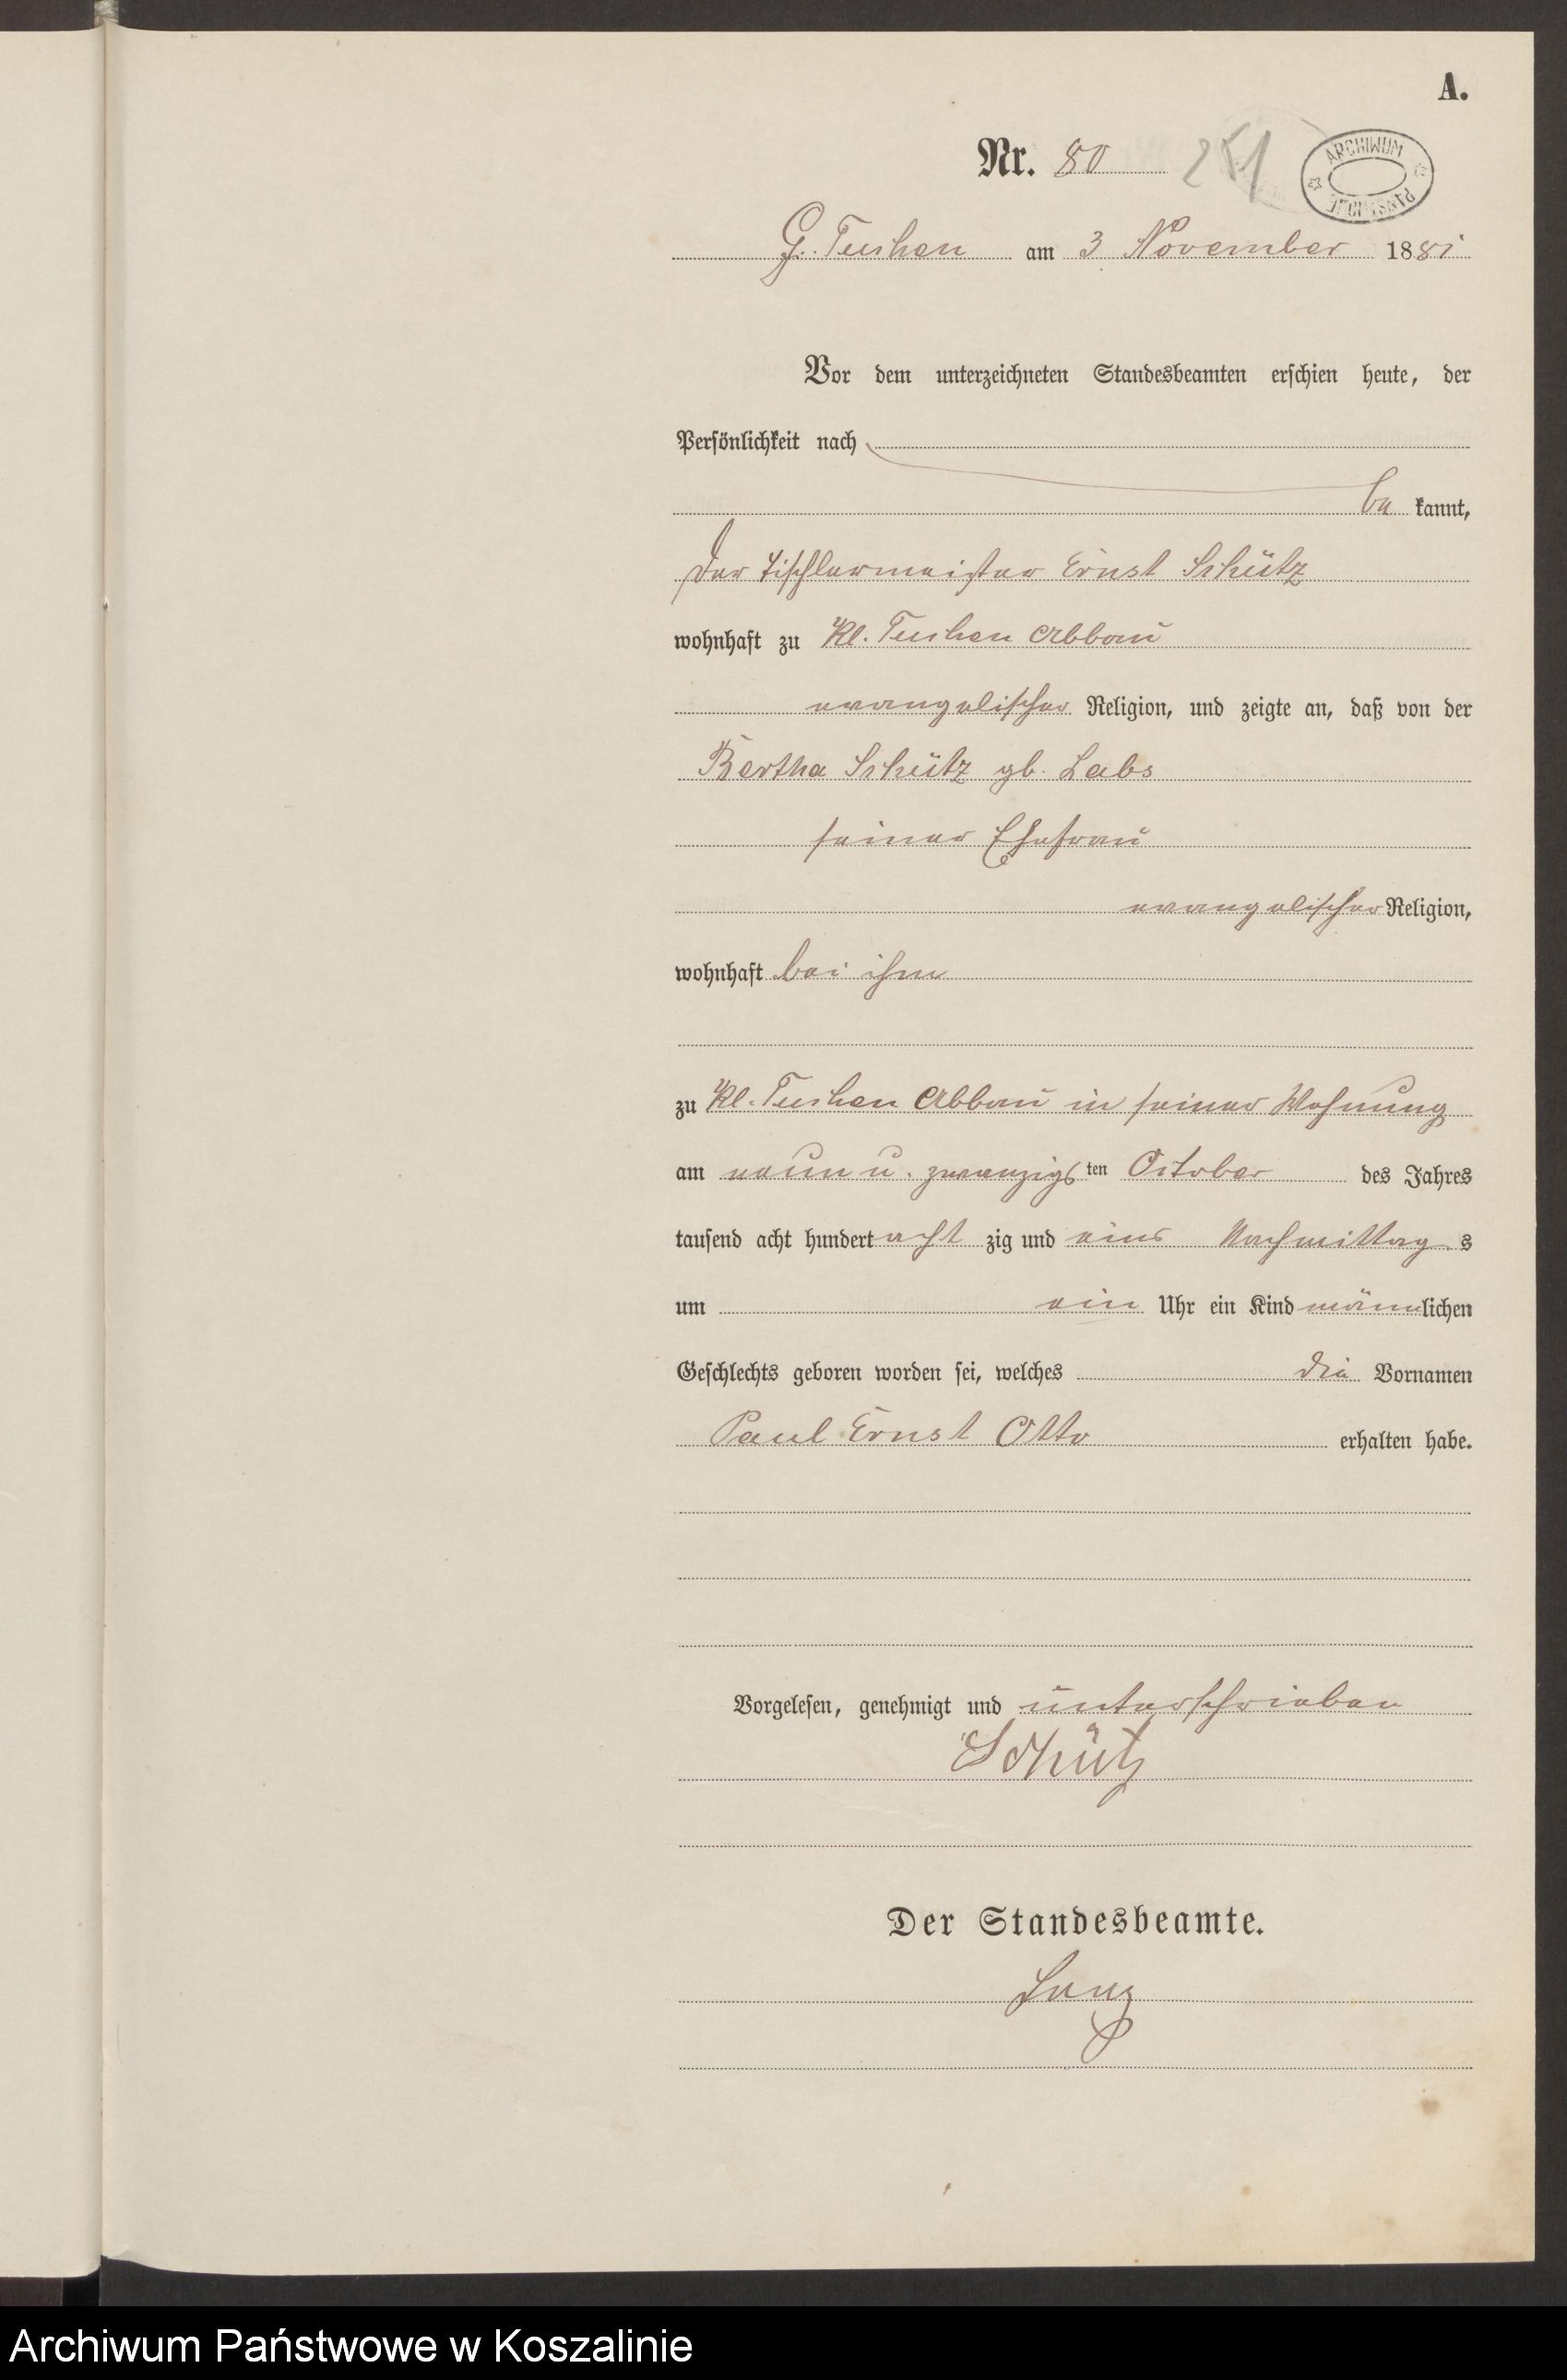 A.
Nr. 80 251
ARCHIWUM PAŃSTWOWE
G. Tuchen am 3 November 1881
Vor dem unterzeichneten Standesbeamten erschien heute, der
Persönlichkeit nach
be kannt,
der Tischlermeister Ernst Schütz
wohnhaft zu Kl. Tuchen Abbau
evangelischer Religion, und zeigte an, daß von der
Bertha Schütz gb. Labs
seiner Ehefrau
evangelischer Religion,
wohnhaft bei ihm
zu Kl. Tuchen Abbau in seiner Wohnung
am neun u. zwanzigsten October des Jahres
tausend acht hundert acht zig und eins Nachmittags
um ein Uhr ein Kind männlichen
Geschlechts geboren worden sei, welches die Vornamen
Paul Ernst Otto erhalten habe.
Vorgelesen, genehmigt und unterschrieben
Schütz
Der Standesbeamte.
Archiwum Państwowe w Koszalinie